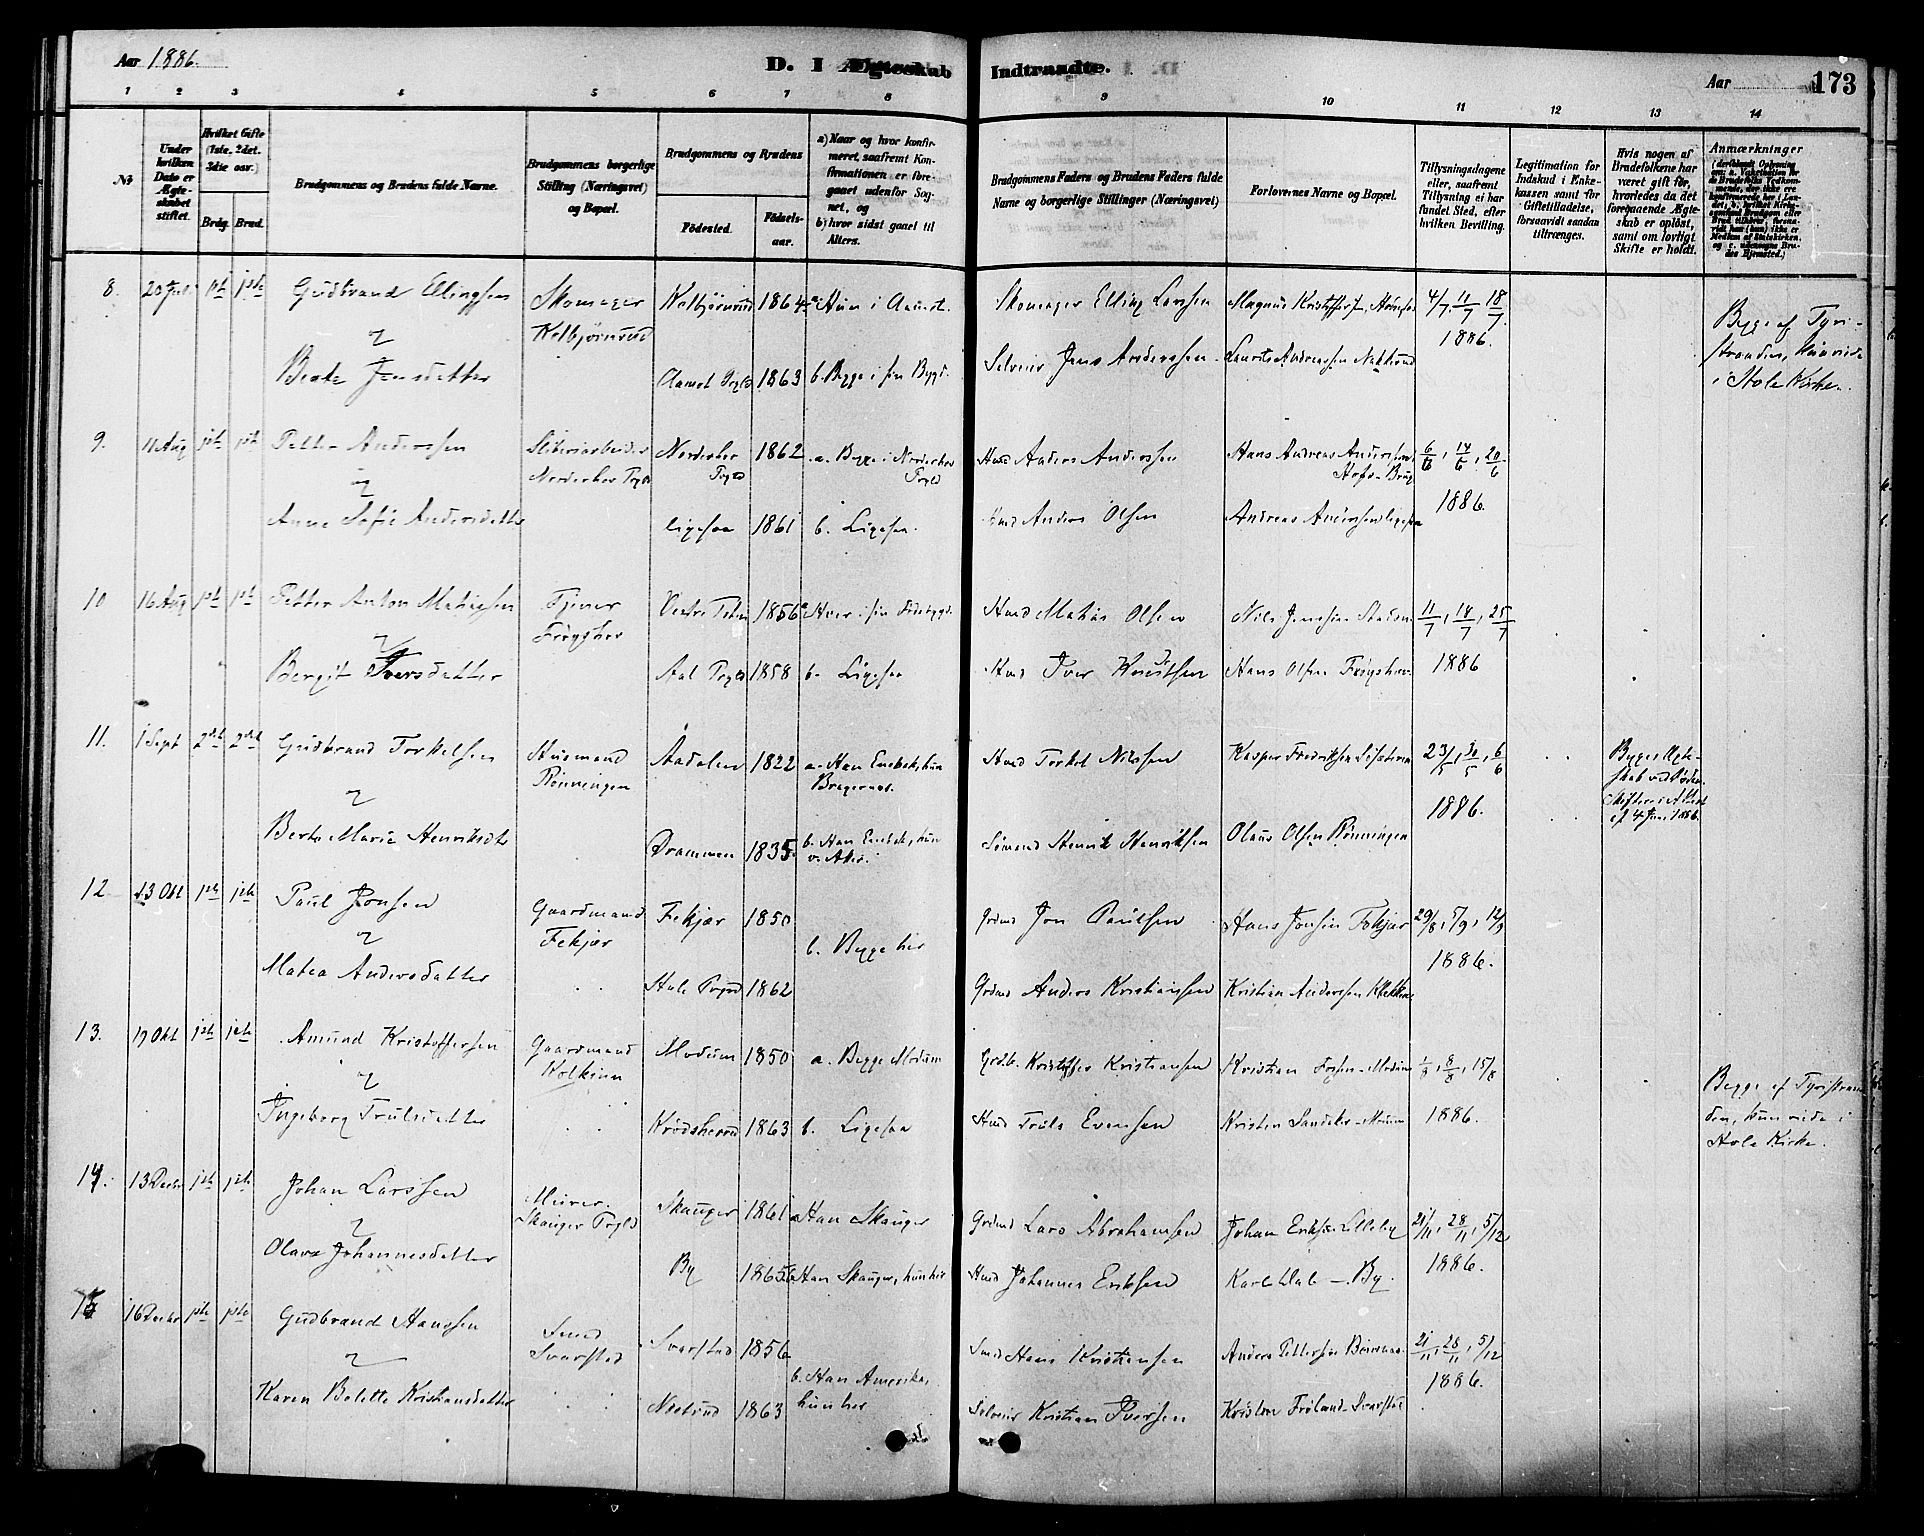 Aar 1886.
D. I Ægteskab Indtraadte.
Aar 173
1 2 3 4 5 6 7 8 9 10 11 12 13 14
No
Under hvilken Dato er Ægteskabet stiftet.
Hvilket Gifte (1ste, 2det, 3die osv.)
Brdg. Brud.
Brudgommens og Brudens fulde Navne.
Brudgommens borgerlige Stilling (Næringsvei) og Bopæl.
Brudgommens og Brudens
Fødested. Fødselsaar.
a) Naar og hvor konfirmeret, saafremt Konfirmationen er foregaaet udenfor Sognet, og
b) hvor sidst gaaet til Alters.
Brudgommens Faders og Brudens Faders fulde Navne og borgerlige Stillinger (Næringsvei)
Forlovernes Navne og Bopæl.
Tillysningsdagene eller, saafremt Tillysning ei har fundet Sted, efter hvilken Bevilling.
Legitimation for Indskud i Enkekassen samt for Giftetilladelse, forsaavidt saadan tiltrænges.
Hvis nogen af Brudefolkene har været gift før, hvorledes da det foregaaende Ægteskab er opløst, samt om lovligt Skifte er holdt.
Anmærkninger
8. 20 Juli 1ste 1ste Gudbrand Ellingsen Skomager Kolbjørnrud 1864 a. Hun i Aamot. Skomager Elling Larssen Magnus Kristoffersen, Hønefos 4/7 11/7 18/7
& Kolbjørnrud 1886.
Berte Jensdatter Aamot Prgld 1863 b. Begge i sin Bygd. Selveier Jens Anderssen Laurits Andreassen Nakkerud
Begge af Tyristranden, kun viede i Hole Kirke.
9. 11 Aug 1ste 1ste Petter Anderssen Sliberiarbeider Norderhov Prgld 1862 a. Begge i Norderhov Prgld Husmd Anders Anderssen Hans Andreas Anderssen Hofs-Brug 6/6, 14/6, 20/6
& Norderhov Prgld 1886.
Anne Sofie Andersdatter ligesaa 1861 b. Ligesaa. Husmd Anders Olsen Andreas Anderssen ligesaa
10 16 Aug 1ste 1ste Petter Anton Mathisen Tjener 1856 a. Hver i sin Fødebygd. Husmd Mathias Olsen Nils Jenssen 11/7, 18/7, 25/7
& Frøyshov 1886
Bergit Iversdatter Aal Prgld 1858 b. Ligesaa Husmd Iver Knudtsen Hans Olsen Frøyshov
11. 1 Sept 2det 2det Gudbrand Torkelsen Husmand Aadalen 1822 a. Han Enebak, hun Bragernæs. Husmd Torkel Nilssen Kasper Fredriksen 23/5, 30/5, 6/6
& Rønningen 1886.
Berte Marie Henriksdtr Drammen 1835 b. Han Enebak, hun v. Aker. Sømand Henrik Henriksen Olaus Olsen Rønningen
12 13 Okt 1ste 1ste Paul Jonsen Gaardmand Fekjær 1850 Grdmd Jon Paulsen Hans Jonsen Fekjær 29/8, 5/9, 12/9
& Fekjær b. Begge her 1886.
Matea Andersdatter Hole Prgld 1862 Grdmd Anders Kristiansen Kristian Anderssen
13. 19 Okt 1ste 1ste Amund Kristoffersen Gaardmand Modum 1850 a. Begge Modum Grdb. Kristoffer Kristiansen Kristian Fossen-Modum 1/8, 8/8, 15/8
& Kolkinn
Ingeborg Trulsdatter Krødsherred 1863 b. Ligesaa Husmd Truls Evensen Kristen Modum 1886.
Begge af Tyristranden, kun viede i Hole Kirke.
14. 13 Decbr 1ste 1ste Johan Larssen Murer Skauger 1861 a Han Skauger Grdmd Lars Abrahamsen Johan Eriksen Lilleby 21/11, 28/11, 5/12
& Skauger Prgld 1886.
Olava Johannesdatter By 1865 b Han Skauger, hun her Husmd Johannes Eriksen Karl Dal - By.
15 16 Decbr 1ste 1ste Gudbrand Hanssen Smed Svarstad 1856 Smed Hans Kristiansen Anders Pettersen 21/11, 28/11, 5/12
& Svarstad b. Han Amerika, hun her 1886.
Karen Bolette Kristiansdatter 1863 Selveier Kristian Iversen Kristen Frøland Svarstad